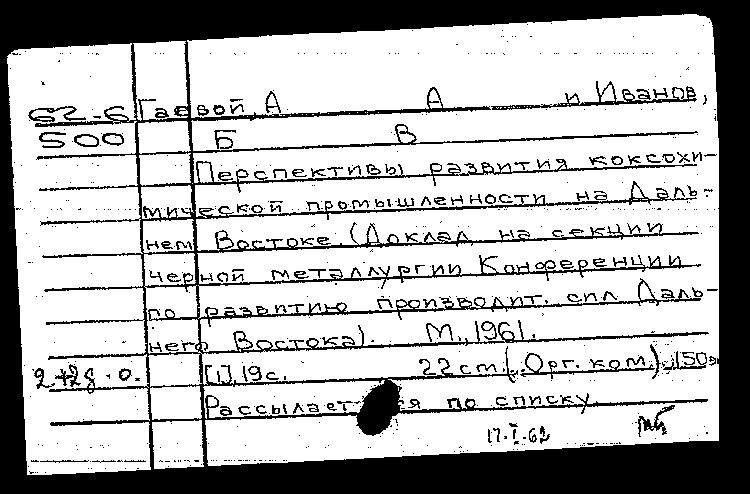 62-6 Гаевой, А А и Иванов,
500 Б В
Перспективы развития коксохи-
мической промышленности на Даль-
нем Востоке. (Доклад на секции
черной металлургии Конференции
по развитию производит. сил Даль-
него Востока). М., 1961.
[1], 19 с. 22 см. (Орг. ком.). 150 э
Рассылает я по списку.
17.I.62